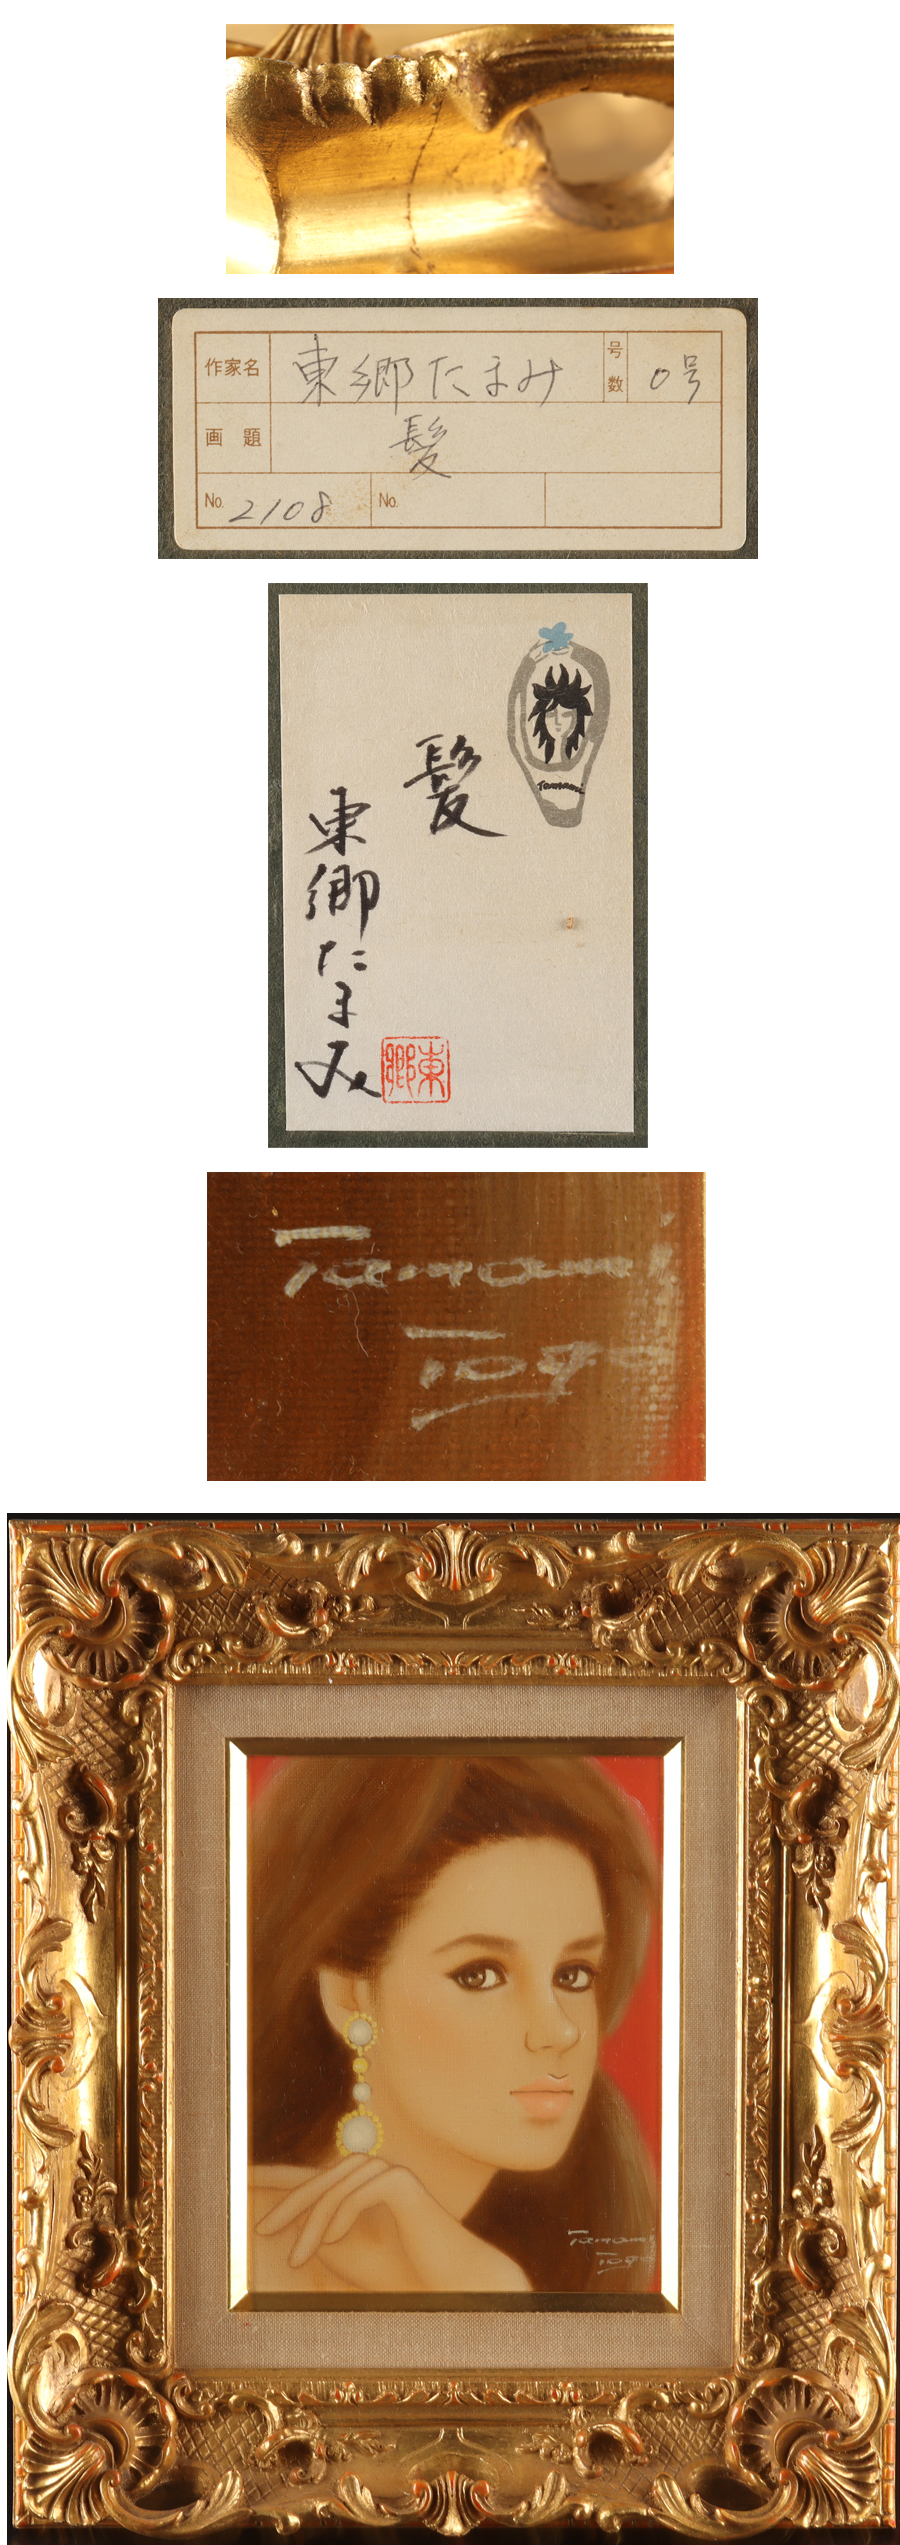 作家名 東郷たまみ 号数 0号
画題 髪
No. 2108 No.
Tamami
髪
東郷たまみ
東郷
Tamami
Togo
Tamami
Togo